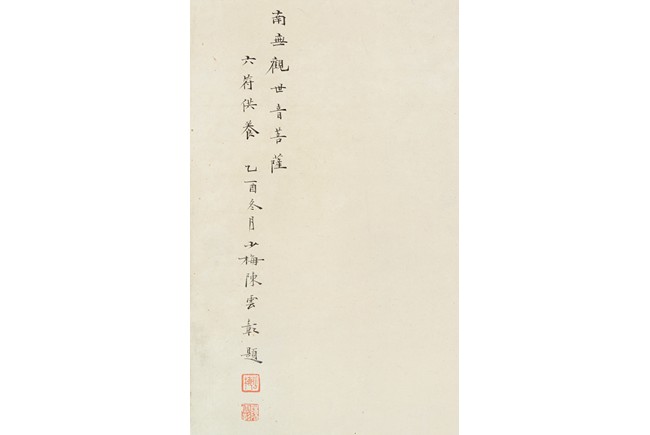 南無觀世音菩薩
六符供養 乙酉冬月 少梅陳雲彰題